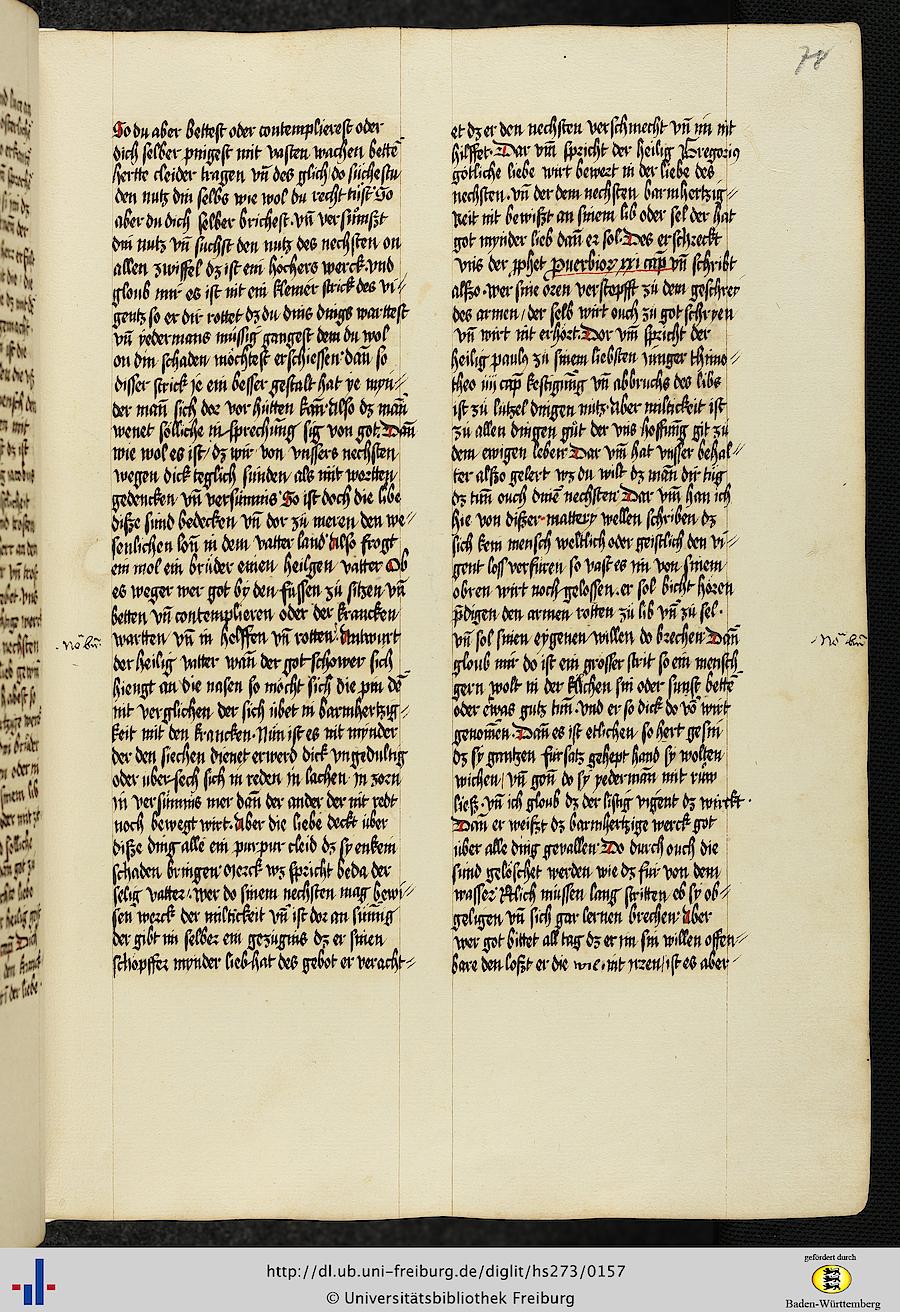 78
So du aber bettest oder contemplierest oder
dich selber pinigest mit vasten wachen bettē
hertte cleider tragen vn̄ des glich do sůchestu
den nutz din selbs wie wol du recht tůst So
aber du dich selber brichest vn̄ versůmszt
din nutz vn̄ sůchst den nutz des nechsten on
allen zwiffel dz ist ein höchers werck vnd
gloub mir es ist nit ein kleiner strick des vi⸗
gentz so er dir rottet dz du dins dings warttest
vn̄ yedermans müssig gangest dem du wol
on din schaden möchtest erschiessen dan̄ so
disser strick je ein besser gestalt hat ye myn⸗
der man̄ sich dor vor hütten kan Also dz man̄
wenet sölliche in sprechung sig von got Dan̄
wie wol es ist / dz wir von vnssers nechsten
wegen dick teglich sunden als mit wortten
gedencken vn̄ versümnis So ist doch die libe
disze sund bedecken vn̄ dor zů meren den we⸗
senlichen lon̄ in dem vatter land Also frogt
ein mol ein brůder einen heilgen vatter Ob
es weger wer got by den füssen zů sitzen vn̄
betten vn̄ contemplieren oder der krancken
wartten vn̄ in helffen vn̄ rotten Antwurt
der heilig vatter wan̄ der got schower sich
hiengt an die nasen so möcht sich die pin dē
nit verglichen der sich übet in barmhertzig⸗
keit mit den krancken Nun ist es nit mynder
der den siechen dienet er werd dick vngedultig
oder uber sech sich in reden in lachen in zorn
in versümnis mer dan̄ der ander der nit redt
noch bewegt wirt Aber die liebe deckt uber
disze ding alle ein purpur cleid dz sy enkein
schaden bringen Merck wz spricht beda der
selig vatter wer do sinem nechsten mag bewi⸗
sen werck der miltickeit vn̄ ist dor an sumig
der gibt im selber ein gezügnis dz er sinen
schöpffer mynder lieb hat des gebot er veracht⸗
No bn̄
et dz er den nechsten verschmecht vn̄ im nit
hilffet Dar vm̄ spricht der heilig Gregorius
götliche liebe wirt bewert in der liebe des
nechsten vn̄ der dem nechsten barmhertzig⸗
keit nit bewiszt an sinem lib oder sel der hat
got mynder lieb dan̄ er sol Des erschreckt
vns der pphet puerbiorͦ xxi cap vn̄ schribt
alszo wer sine oren verstopfft zů dem geschrey
des armen / der selb wirt ouch zů got schryen
vn̄ wirt nit erhört Dor vm̄ spricht der
heilig paulꝯ zů sinem liebsten junger thimo⸗
theo iiii cap kestigung vn̄ abbruchs des libs
ist zů lutzel dingen nütz Aber miltickeit ist
zů allen dingen gůt der vns hoffnung git zů
dem ewigen leben Dar vm̄ hat vnsser behal⸗
ter alszo gelert wz du wilt dz man dir tüg
dz tům ouch dinē nechsten Dar vm̄ han ich
hie von diszer mattery wellen schriben dz
sich kein mensch weltlich oder geistlich den vi⸗
gent loss verfüren so vast es im von sinem
obren wirt noch gelossen er sol bicht hören
p̄digen den armen rotten zů lib vn̄ zů sel
vn̄ sol sinen eygenen willen do brechen Dan̄
gloub mir do ist ein grosser strit so ein mensch
gern wolt in der kilchen sin oder sunst bettē
oder etwas gutz tům vnd er so dick do vō wirt
genomen Dan̄ es ist etlichen so hert gesin
dz sy gantzen fursatz gehept hand sy wolten
wichen / vn̄ gon̄ do sy yederman mit rüw
liesz vn̄ ich gloub dz der listig vigent dz wirckt
Dan̄ er weiszt dz barmhertzige werck got
über alle ding gevallen Do durch ouch die
sund gelöschet werden wie dz für von dem
wasser Etlich müssen lang stritten eb sy ob⸗
geligen vn̄ sich gar lernen brechen Aber
wer got bittet all tag dz er im sin willen offen⸗
bare den loszt er die wie nit yrren / ist es aber
No bn̄
http://dl.ub.uni-freiburg.de/diglit/hs273/0157
© Universitätsbibliothek Freiburg
gefördert durch
Baden-Württemberg